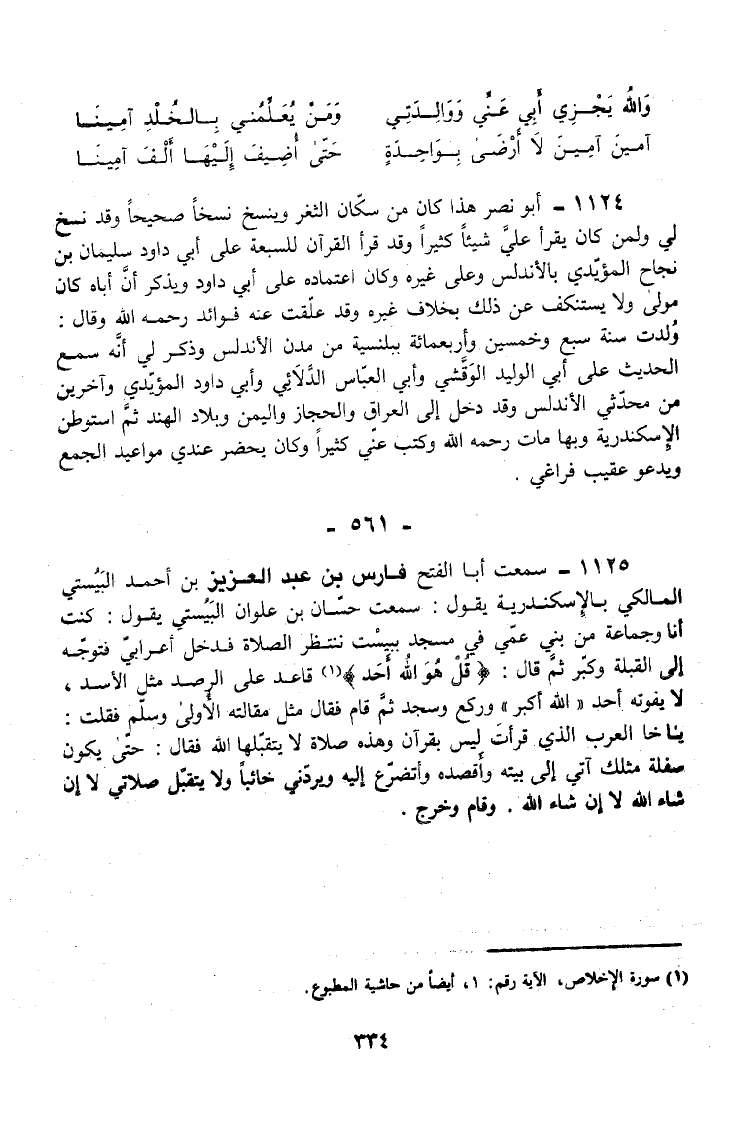 وَاللهُ يَجْزِي أَبِي عَنِّي وَوَالِدَتِي    وَمَنْ يُعَلِّمُني بِالخُلْدِ آمِينَا
آمينَ آمِينَ لَا أَرْضَىٰ بِوَاحِدَةٍ    حَتَّىٰ أُضِيفَ إِلَيْهَا أَلْفَ آمِينَا
١١٢٤ - أبو نصر هذا كان من سكّان الثغر وينسخ نسخاً صحيحاً وقد نسخ
لي ولمن كان يقرأ عليَّ شيئاً كثيراً وقد قرأ القرآن للسبعة على أبي داود سليمان بن
نجاح المؤيّدي بالأندلس وعلى غيره وكان اعتماده على أبي داود ويذكر أنَّ أباه كان
مولىٰ ولا يستنكف عن ذلك بخلاف غيره وقد علّقت عنه فوائد رحمه الله وقال :
وُلدت سنة سبع وخمسين وأربعمائة ببلنسية من مدن الأندلس وذكر لي أنَّه سمع
الحديث على أبي الوليد الوَقَّشي وأبي العبّاس الدَّلَائِي وأبي داود المؤيّدي وآخرين
من محدّثي الأندلس وقد دخل إلى العراق والحجاز واليمن وبلاد الهند ثمَّ استوطن
الإسكندرية وبها مات رحمه الله وكتب عنّي كثيراً وكان يحضر عندي مواعيد الجمع
ويدعو عقيب فراغي .
- ٥٦١ -
١١٢٥ - سمعت أبا الفتح فارس بن عبد العزيز بن أحمد البَيُستي
المالكي بالإسكندرية يقول : سمعت حسّان بن علوان البَيُستي يقول : كنت
أنا وجماعة من بني عمّي في مسجد ببيسْت ننتظر الصلاة فدخل أعرابيّ فتوجّه
إلى القبلة وكبّر ثمَّ قال : ﴿ قُلْ هُوَ اللهُ أَحَد ﴾(١) قاعد على الرصد مثل الأسد ،
لا يفوته أحد « الله أكبر » وركع وسجد ثمَّ قام فقال مثل مقالته الأُولىٰ وسلّم فقلت :
يا أخا العرب الذي قرأتَ ليس بقرآن وهذه صلاة لا يتقبّلها الله فقال : حتّىٰ يكون
سفلة مثلك آتي إلى بيته وأقصده وأتضرّع إليه ويردّني خائباً ولا يتقبّل صلاتي لا إن
شاء الله لا إن شاء الله . وقام وخرج .
(١) سورة الإخلاص، الآية رقم: ١، أيضاً من حاشية المطبوع.
٣٣٤